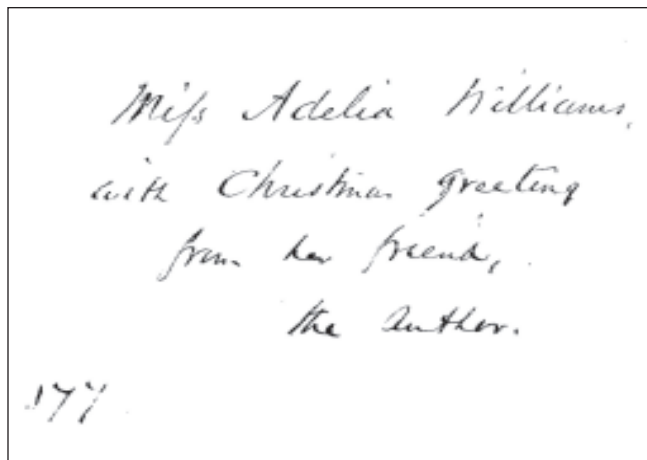 Miſs Adelia Williams,
with Christmas greeting
from her friend,
the author.